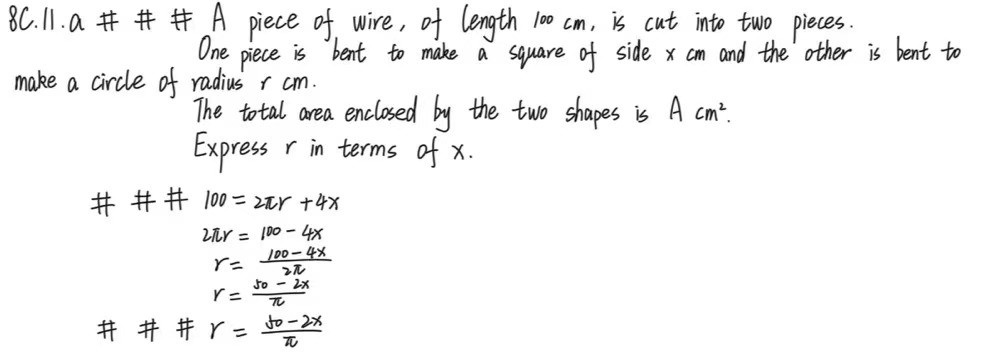 8C.11.a # # # A piece of wire, of length 100 cm, is cut into two pieces.
One piece is bent to make a square of side x cm and the other is bent to
make a circle of radius r cm.
The total area enclosed by the two shapes is A cm².
Express r in terms of x.
# # # 100 = 2πr + 4x
2πr = 100 - 4x
r = (100 - 4x)/(2π)
r = (50 - 2x)/π
# # # r = (50 - 2x)/π